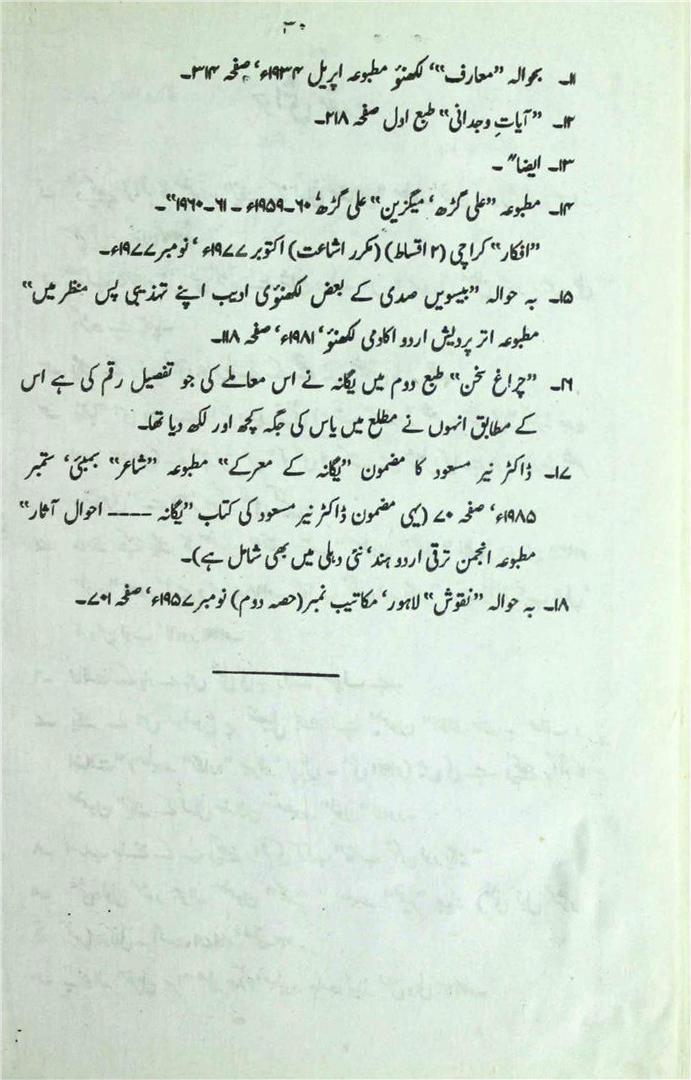 ۳۰
۱۱۔ بحوالہ ”معارف“‘ لکھنؤ مطبوعہ اپریل ۱۹۳۴ء‘ صفحہ ۳۱۴۔
۱۲۔ ”آیاتِ وجدانی“ طبع اول صفحہ ۲۱۸۔
۱۳۔ ایضاً۔
۱۴۔ مطبوعہ ”علی گڑھ‘ میگزین“ علی گڑھ‘ ۶۰۔۱۹۵۹ء ۔ ۶۱۔۱۹۶۰“۔
”افکار“ کراچی (۲ اقساط) (مکرر اشاعت) اکتوبر ۱۹۷۷ء‘ نومبر ۱۹۷۷ء۔
۱۵۔ بہ حوالہ ”بیسویں صدی کے بعض لکھنؤی ادیب اپنے تہذیبی پس منظر میں“
مطبوعہ اتر پردیش اردو اکادمی لکھنؤ‘ ۱۹۸۱ء‘ صفحہ ۱۱۸۔
۱۶۔ ”چراغ سخن“ طبع دوم میں یگانہ نے اس معاملے کی جو تفصیل رقم کی ہے اس
کے مطابق انہوں نے مطلع میں یاس کی جگہ کچھ اور لکھ دیا تھا۔
۱۷۔ ڈاکٹر نیر مسعود کا مضمون ”یگانہ کے معرکے“ مطبوعہ ”شاعر“ بمبئی‘ ستمبر
۱۹۸۵ء‘ صفحہ ۷۰ (یہی مضمون ڈاکٹر نیر مسعود کی کتاب ”یگانہ ۔۔۔۔ احوال آثار“
مطبوعہ انجمن ترقی اردو ہند‘ نئی دہلی میں بھی شامل ہے)۔
۱۸۔ بہ حوالہ ”نقوش“ لاہور‘ مکاتیب نمبر (حصہ دوم) نومبر ۱۹۵۷ء‘ صفحہ ۷۰۱۔